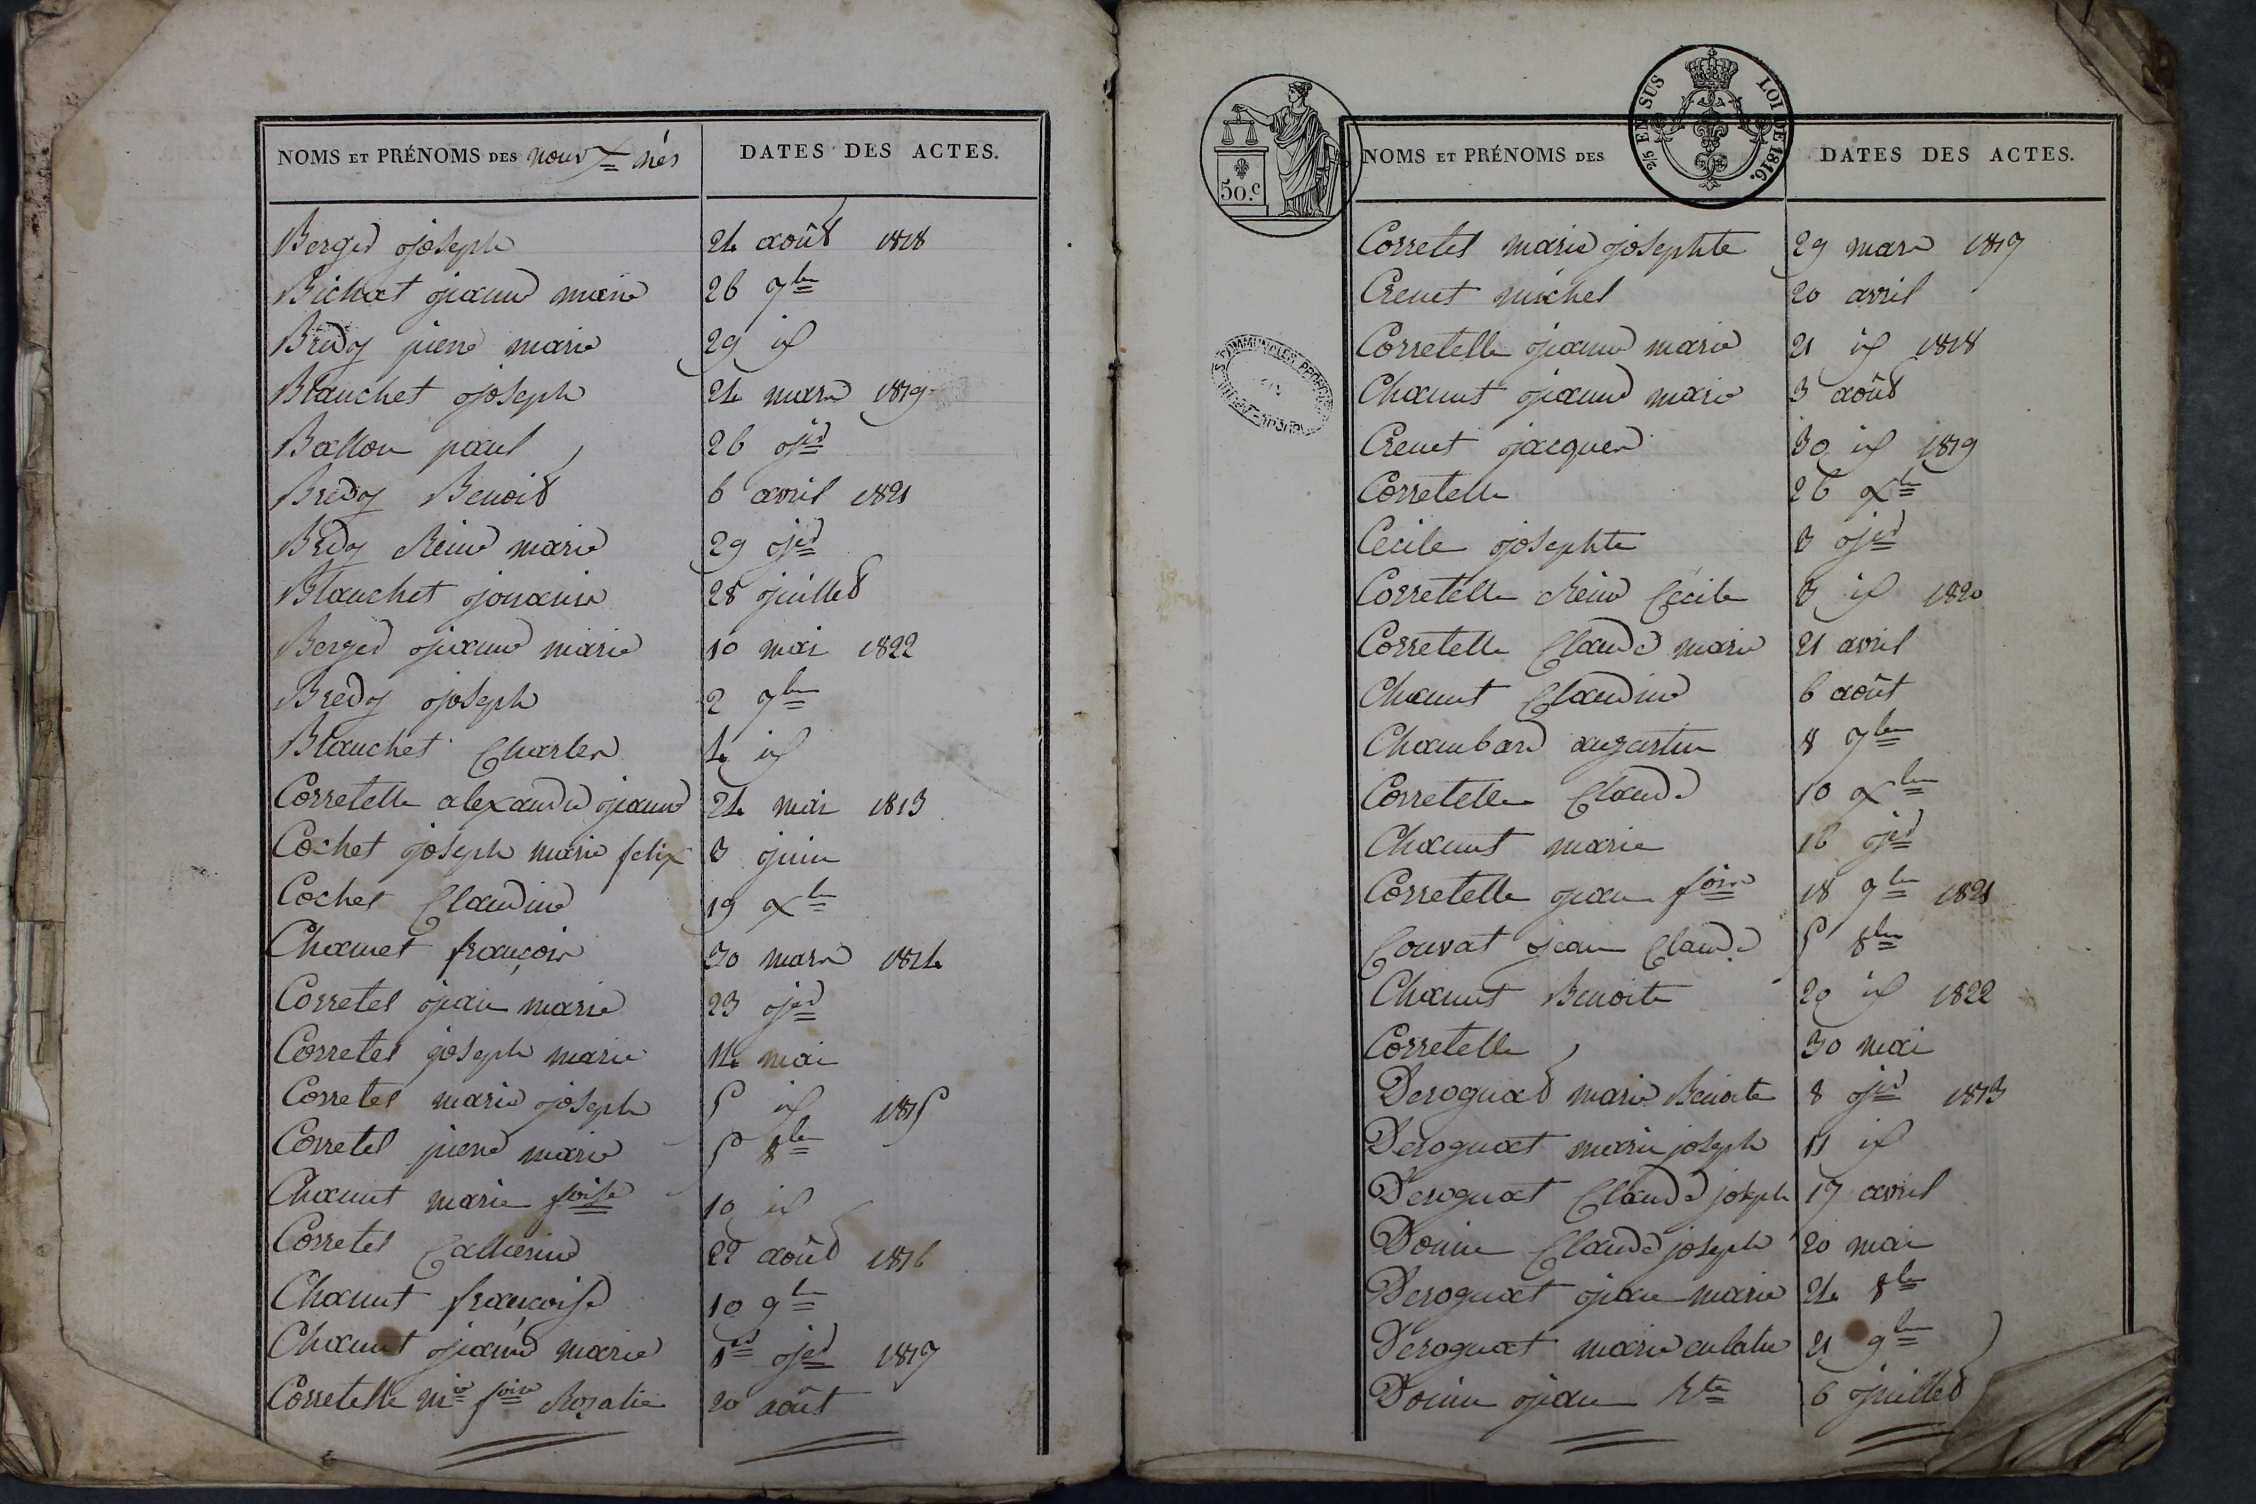 NOMS ET PRÉNOMS DES nouvx nés DATES DES ACTES.
Berger joseph 24 août 1818
Bichat jeanne marie 26 7bre
Bredy pierre marie 29 id
Blanchet joseph 24 mars 1819
Ballon paul 26 jer
Bredy Benoit 6 avril 1821
Bredy Reine marie 29 jer
Blanchet 28 juillet
Berger jeanne marie 10 mai 1822
Bredy joseph 2 7bre
Blanchet Charles 4 id
Corretelle alexandre jeanne 24 mai 1813
Cochet joseph marie felix 3 juin
Cochet Claudine 19 xbre
Chanut françois 30 mars 1814
Corretel jean marie 23 jer
Corretel joseph marie 14 mai
Corretel marie joseph 5 id 1815
Corretel pierre marie 5 8bre
Chanut marie foise 10 id
Corretel Catherine 22 août 1816
Chanut françoise 10 9bre
Chanut jeanne marie 1er jer 1817
Corretelle mie foise Rozalie 20 août
50.c
2/5 EN SUS LOI DE 1816.
NOMS ET PRÉNOMS DES DATES DES ACTES.
Corretel marie josephte 29 mars 1817
Crenet michel 20 avril
Corretelle jeanne marie 21 id 1818
Chanut jeanne marie 3 août
Crenet jacques 30 id 1819
Corretelle 26 xbre
Cécile josephte 3 jer
Corretelle Reine Cécile 3 id 1820
Corretelle Claude marie 21 avril
Chanut Claudine 6 août
Chambard augustin 8 7bre
Corretelle Claude 10 xbre
Chanut marie 16 jer
Corretelle jean fois 18 9bre 1821
Couvat jean Claude 5 8bre
Chanut Benoite 29 id 1822
Corretelle 30 mai
Deroguat marie Benoite 8 jer 1813
Deroguat marie joseph 11 id
Deroguat Claude joseph 17 avril
Donin Claude joseph 20 mai
Deroguat jean marie 24 8bre
Deroguat marie 21 9bre
Donin jean Bte 6 juillet